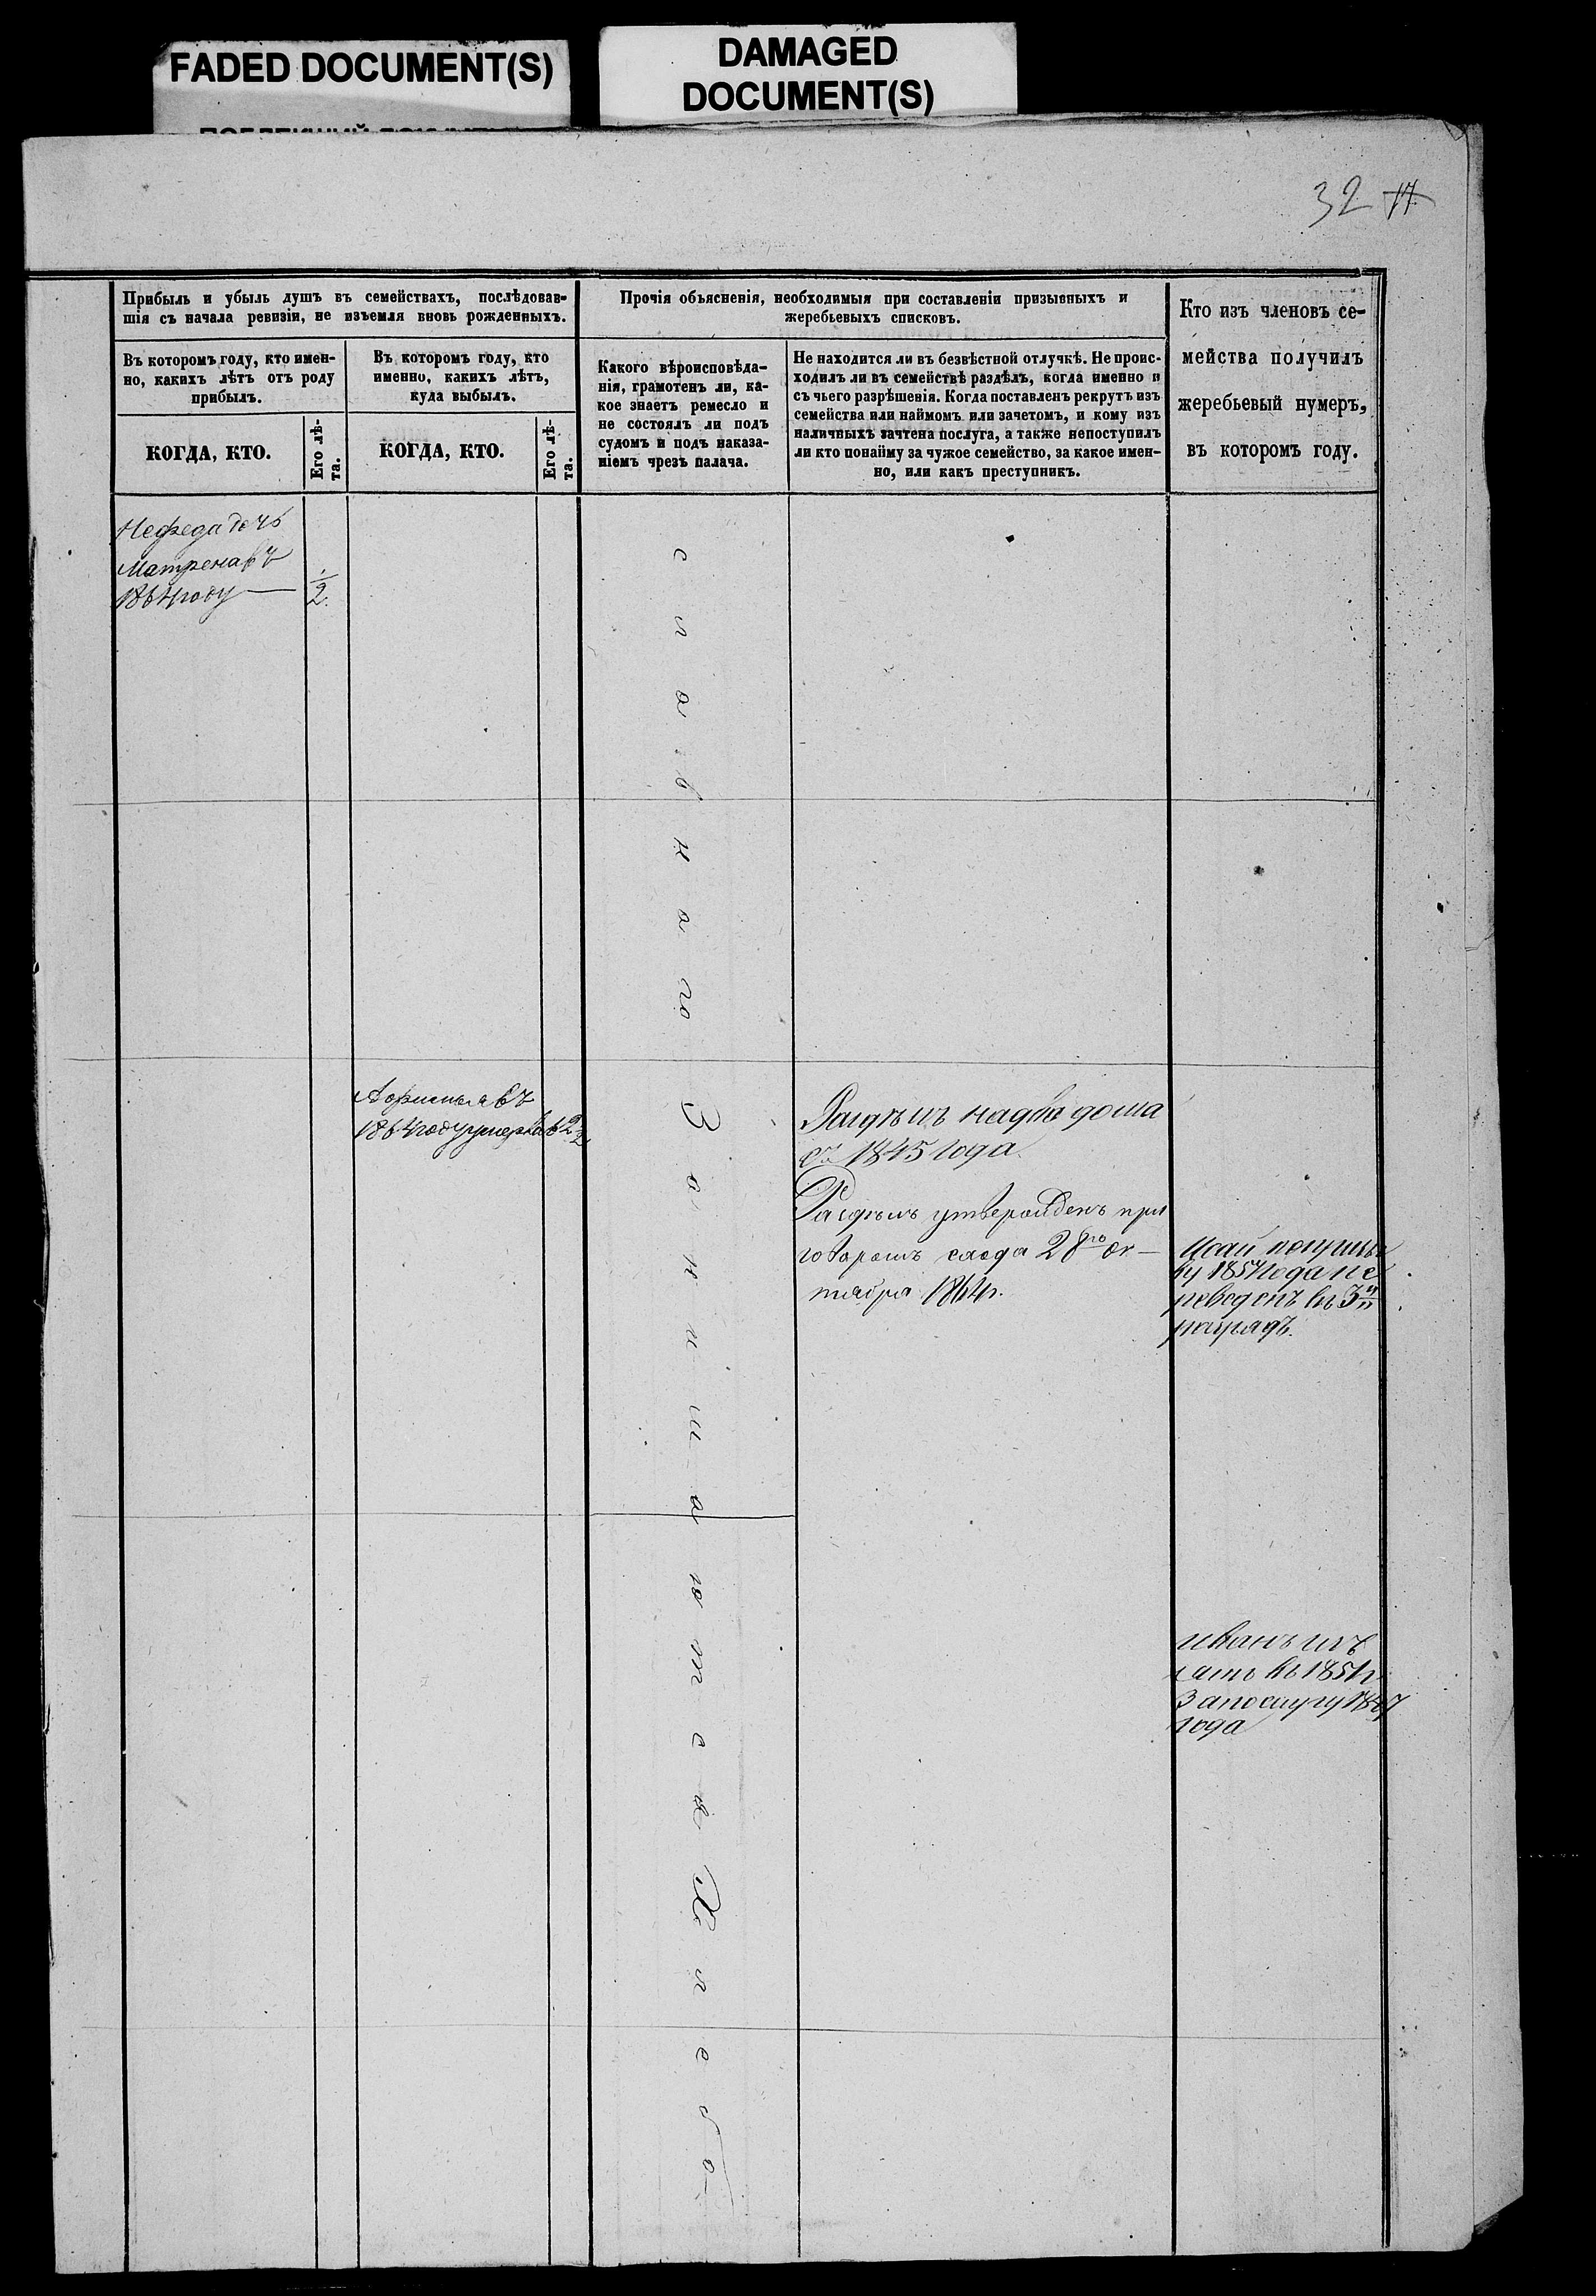 FADED DOCUMENT(S)
DAMAGED
DOCUMENT(S)
32 17
Прибыль и убыль душъ въ семействахъ, послѣдовав-
шія съ начала ревизіи, не изъемля вновь рожденныхъ.
Въ которомъ году, кто имен-
но, какихъ лѣтъ отъ роду
прибылъ.
КОГДА, КТО.
Его лѣ-
та.
Въ которомъ году, кто
именно, какихъ лѣтъ,
куда выбылъ.
КОГДА, КТО.
Его лѣ-
та.
Прочія объясненія, необходимыя при составленіи призывныхъ и
жеребьевыхъ списковъ.
Какого вѣроисповѣда-
нія, грамотенъ ли, ка-
кое знаетъ ремесло и
не состоялъ ли подъ
судомъ и подъ наказа-
ніемъ чрезъ палача.
Не находится ли въ безвѣстной отлучкѣ. Не проис-
ходилъ ли въ семействѣ раздѣлъ, когда именно и
съ чьего разрѣшенія. Когда поставленъ рекрутъ изъ
семейства или наймомъ или зачетомъ, и кому изъ
наличныхъ зачтена послуга, а также непоступилъ
ли кто понайму за чужое семейство, за какое имен-
но, или какъ преступникъ.
Кто изъ членовъ се-
мейства получилъ
жеребьевый нумеръ,
въ которомъ году.
Нефеда дочь
Матрена въ
1864 году — 1/2
въ
1864 году умерла
славнаго Занимаются Хлебо-
Раздѣлъ на два дома
съ 1845 года
Раздѣлъ утвержденъ при
говоромъ схода 28го Ок-
тября 1864 г.
Исай
1857 года пе
реведенъ въ 3й
разрядъ.
Иванъ изъ
въ 1851 г
За послугу
года